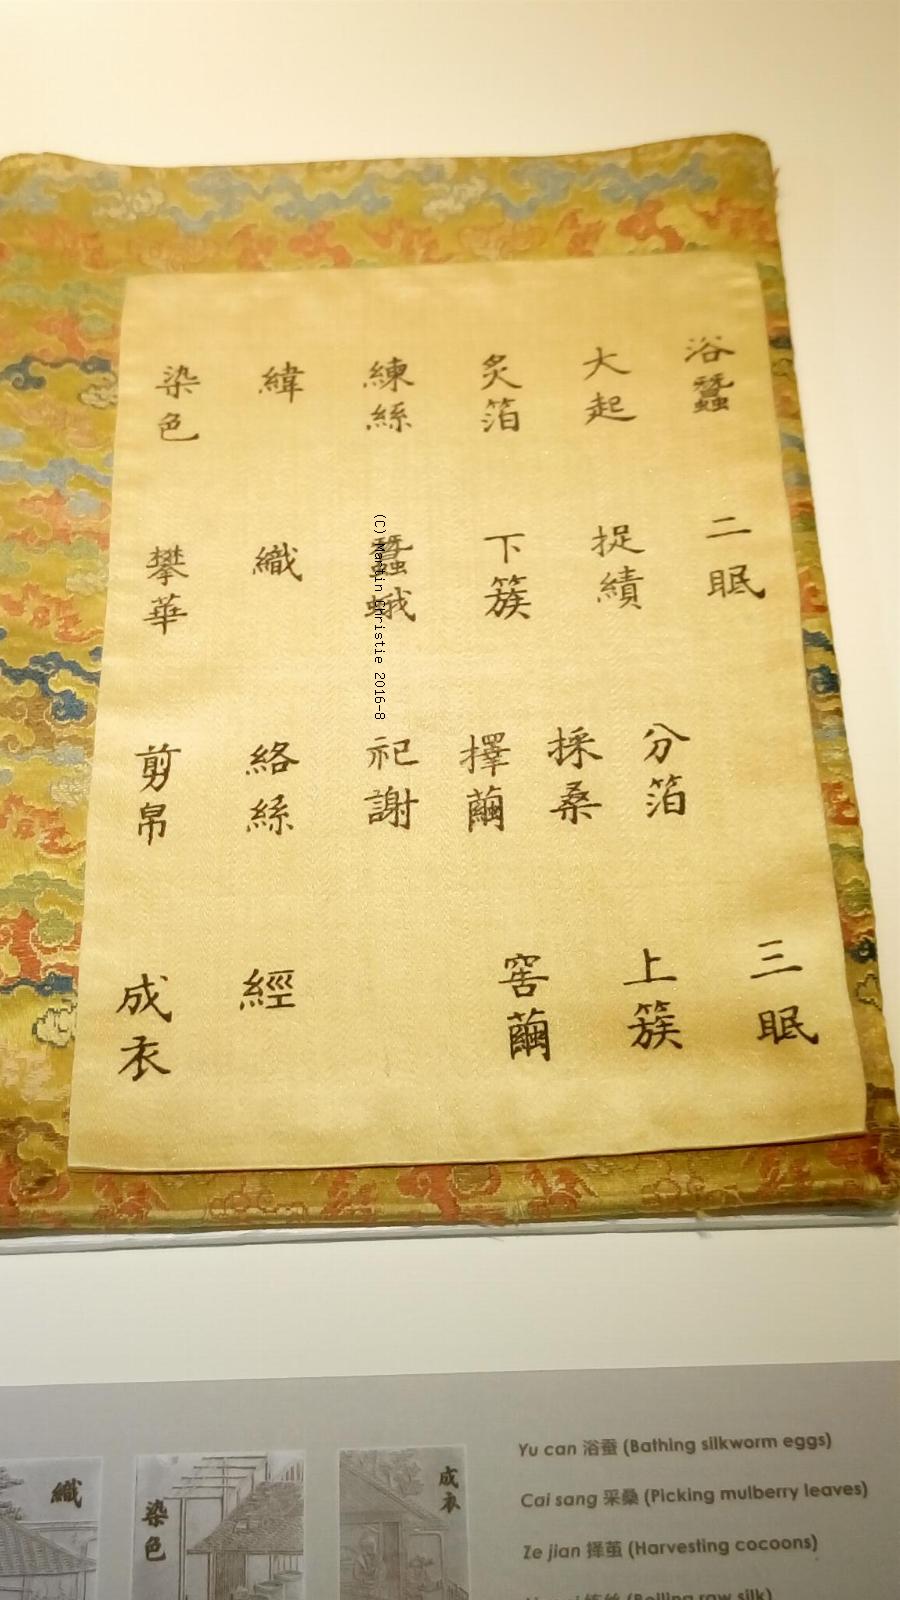 浴蠶
二眠
三眠
大起
捉績
分箔
採桑
上簇
炙箔
下簇
擇繭
窖繭
練絲
蠶蛾
祀謝
緯
織
絡絲
經
染色
攀華
剪帛
成衣
(C) Martin Christie 2016-8
織
染色
成衣
Yu can 浴蚕 (Bathing silkworm eggs)
Cai sang 采桑 (Picking mulberry leaves)
Ze jian 择茧 (Harvesting cocoons)
(Boiling raw silk)